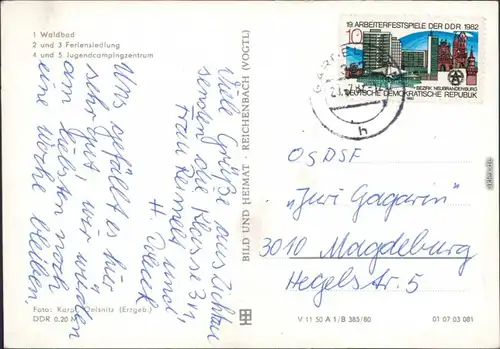 1 Waldbad
2 und 3 Feriensiedlung
4 und 5 Jugendcampingzentrum
Uns gefällt es hier
sehr gut, wir würden
am liebsten noch
eine Woche bleiben.
Viele Grüße aus
senden die Klasse 3
Frau und
H.
Foto: Oelsnitz (Erzgeb.)
DDR 0.20 M
BILD UND HEIMAT · REICHENBACH (VOGTL)
19. ARBEITERFESTSPIELE DER DDR 1982
10
BEZIRK NEUBRANDENBURG
DEUTSCHE DEMOKRATISCHE REPUBLIK
h
OSDSF
„Juri Gagarin"
3010 Magdeburg
Hegelstr. 5
V 11 50 A 1/B 385/80
01 07 03 081